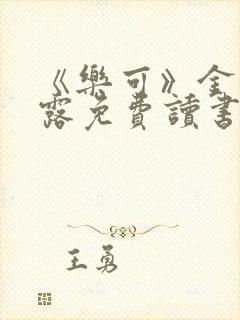 《樂可》全
露免費讀書
王勇